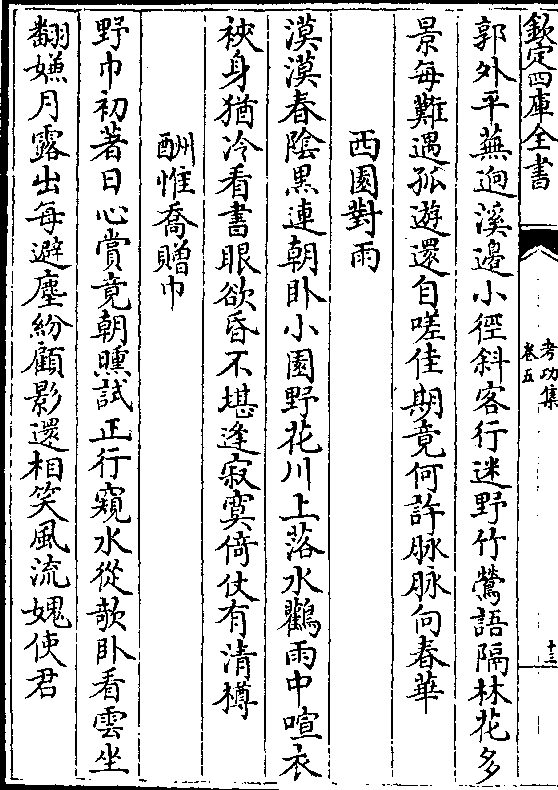 欽定四庫全書
考功集
卷五
十三
郭外平蕪迥溪邊小徑斜客行迷野竹鶯語隔林花多
景每難遇孤遊還自嗟佳期竟何許脉脉向春華
西園對雨
漠漠春陰黑連朝卧小園野花川上落水鸛雨中喧衣
裌身猶冷看書眼欲昏不堪逢寂寞倚仗有清樽
酬惟喬贈巾
野巾初著日心賞竟朝曛試正行窺水從欹卧看雲坐
翻嫌月露出每避塵紛顧影還相笑風流媿使君